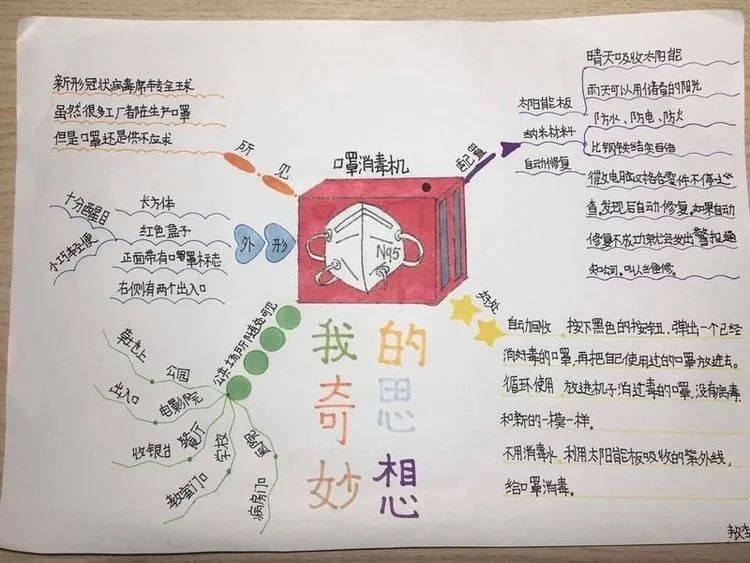 新形冠状病毒席卷全球
虽然很多工厂都在生产口罩
但是口罩还是供不应求
所见
口罩消毒机
配置
太阳能板
晴天吸收太阳能
雨天可以用储备的阳光
纳米材料
防水、防电、防火
比钢铁结实百倍
自动修复
微型电脑对各零件不停巡
查,发现后自动修复,如果自动
修复不成功就会发出警报通
知公司,叫人当维修。
外形
十分醒目
小巧轻便
长方体
红色盒子
正面带有口罩标志
右侧有两个出入口
N95
好处
自动回收,按下黑色的按钮,弹出一个已经
消好毒的口罩,再把自己使用过的口罩放进去。
循环使用,放进机子消过毒的口罩,没有病毒
和新的一模一样。
不用消毒水,利用太阳能板吸收的紫外线,
给口罩消毒。
公共场所随处可见
公园
草地上
电影院
出入口
餐厅
收银台
学校
教室门口
医院
病房门口
我的
奇思
妙想